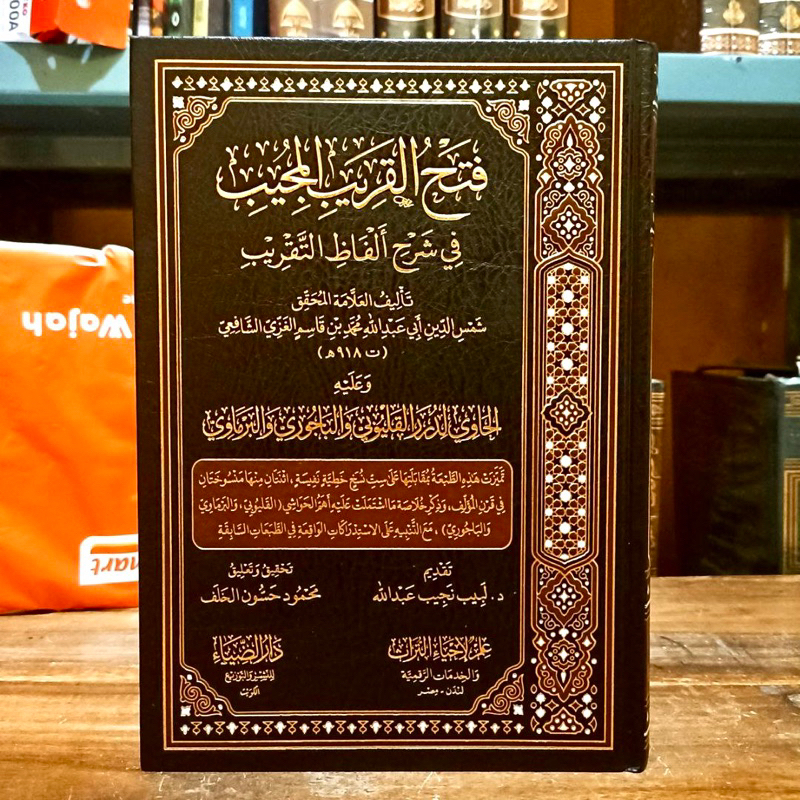 فَتْحُ القَرِيبِ المُجِيبِ
فِي شَرْحِ أَلْفَاظِ التَّقْرِيْبِ
تَأْلِيفُ العَلَّامَةِ المُحَقِّقِ
شَمْسِ الدِّينِ أَبِي عَبْدِ اللهِ مُحَمَّدِ بْنِ قَاسِمٍ الغَزِّيِّ الشَّافِعِيِّ
(ت ٩١٨ هـ)
وَعَلَيْهِ
الحَاوِي لِدُرَرِ القَلْيُوبِيِّ وَالبَاجُورِيِّ وَالبَرْمَاوِيِّ
تَمَيَّزَتْ هَذِهِ الطَّبْعَةُ بِمُقَابَلَتِهَا عَلَى سِتِّ نُسَخٍ خَطِّيَّةٍ نَفِيسَةٍ ، اثْنَتَانِ مِنْهَا مَنْسُوخَتَانِ
فِي قَرْنِ المُؤَلِّفِ، وَذِكْرِ خُلَاصَةِ مَا اشْتَمَلَتْ عَلَيْهِ أَهَمُّ الحَوَاشِي (القَلْيُوبِيِّ، وَالبَرْمَاوِيِّ
وَالبَاجُورِيِّ) ، مَعَ التَّنْبِيهِ عَلَى الاسْتِدْرَاكَاتِ الوَاقِعَةِ فِي الطَّبَعَاتِ السَّابِقَةِ
تَقْدِيم
د. لَبِيب نَجِيب عَبْدالله
تَحْقِيق وَتَعْلِيق
مَحْمُود حَسُّون الخَلَف
عِلْم لِإحْيَاءِ التُّرَاث
وَالخِدمَات الرَّقمِيَّة
لندن - مصر
دَارُ الضِّيَاءِ
للنشر والتوزيع
الكويت
Wajah
mart
00A